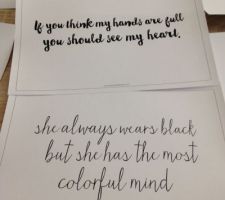 If you think my hands are full
you should see my heart.
she always wears black
but she has the most
colorful mind